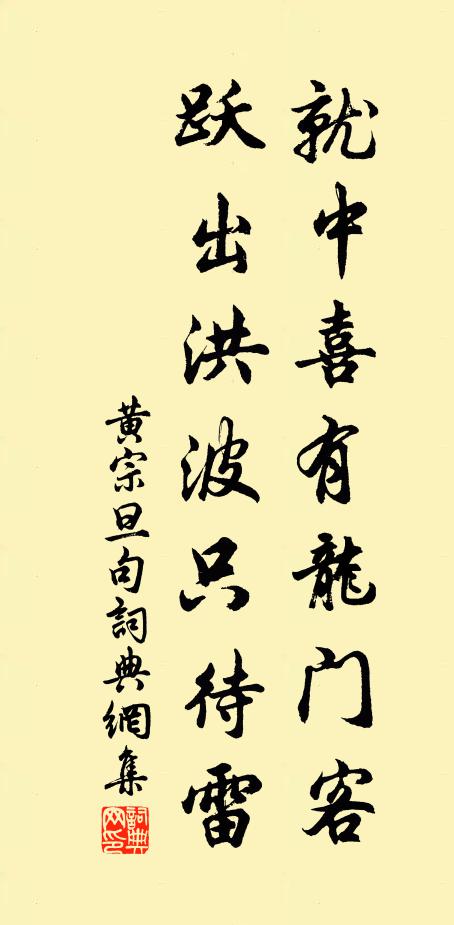 就中喜有龍门客
跃出洪波只待雷
黄宗旦句詞典網集
詞典
网印